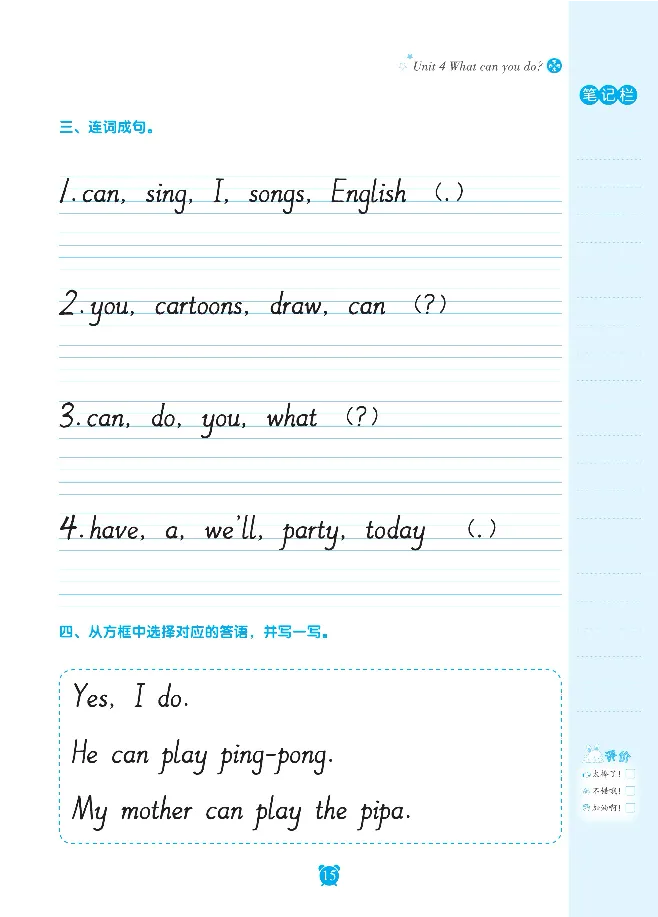 Unit 4 What can you do?
笔记栏
三、连词成句。
1. can, sing, I, songs, English （.）
2. you, cartoons, draw, can （?）
3. can, do, you, what （?）
4. have, a, we'll, party, today （.）
四、从方框中选择对应的答语，并写一写。
Yes, I do.
He can play ping-pong.
My mother can play the pipa.
评价
太棒了!
不错哦!
加油啊!
15